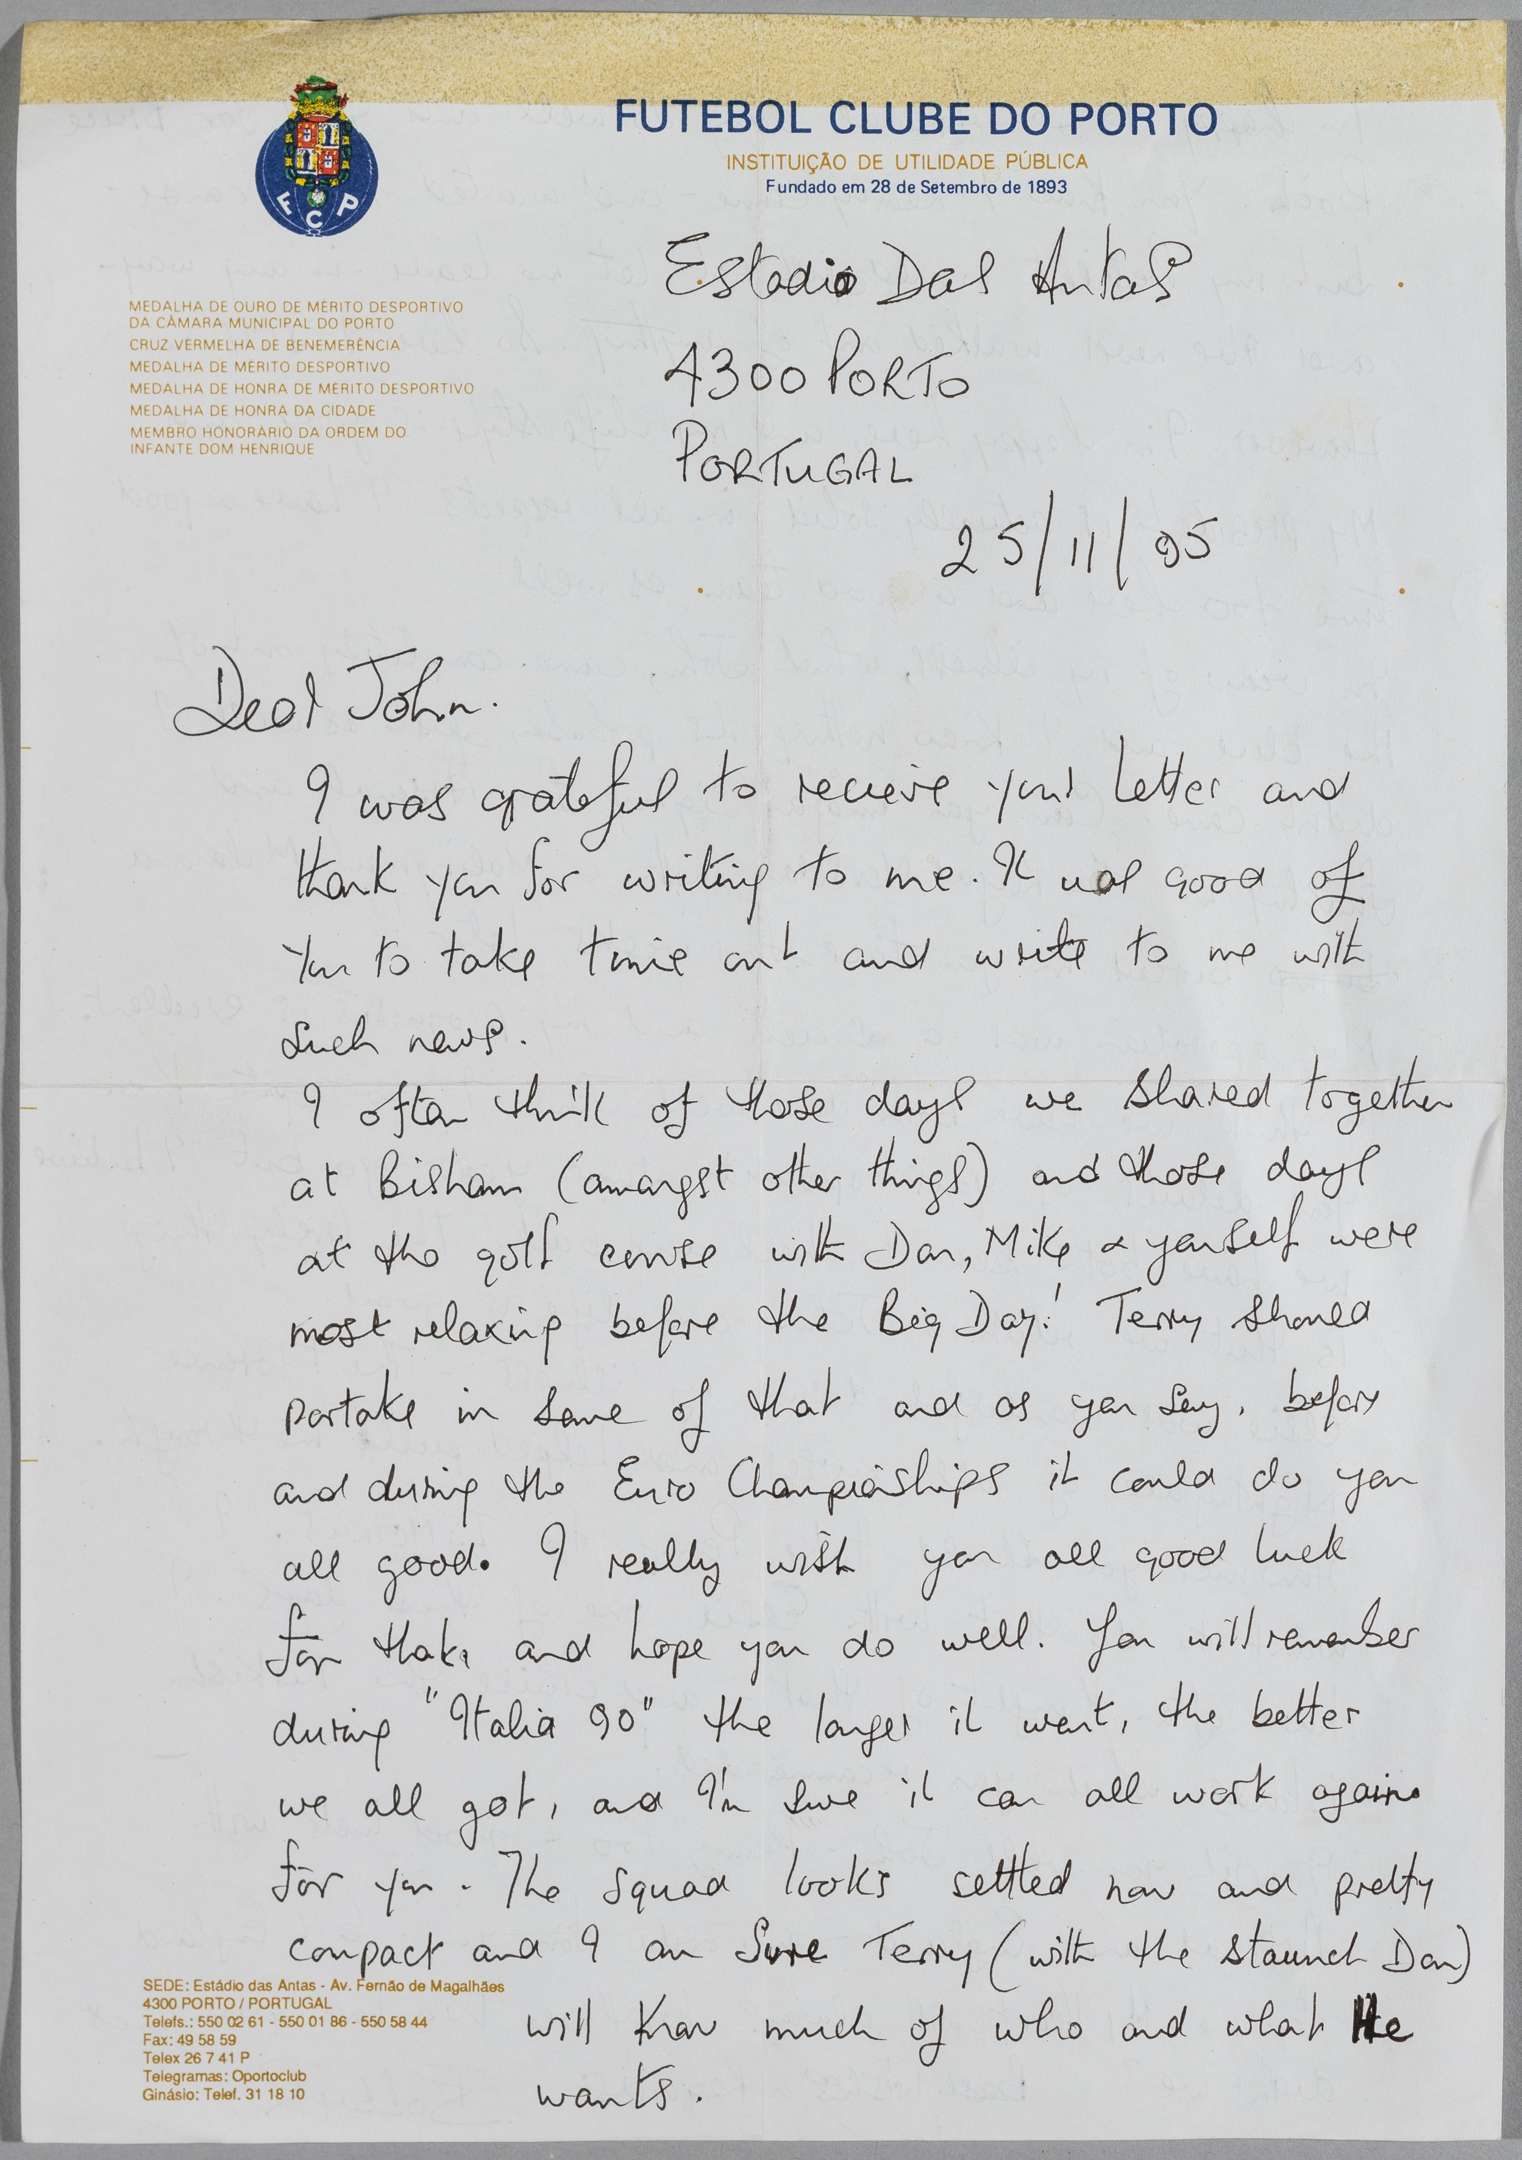 FUTEBOL CLUBE DO PORTO
INSTITUIÇÃO DE UTILIDADE PÚBLICA
Fundado em 28 de Setembro de 1893
F C P
MEDALHA DE OURO DE MÉRITO DESPORTIVO
DA CÂMARA MUNICIPAL DO PORTO
CRUZ VERMELHA DE BENEMERÊNCIA
MEDALHA DE MÉRITO DESPORTIVO
MEDALHA DE HONRA DE MÉRITO DESPORTIVO
MEDALHA DE HONRA DA CIDADE
MEMBRO HONORÁRIO DA ORDEM DO
INFANTE DOM HENRIQUE
Estadio Das Antas
4300 PORTO
PORTUGAL
25/11/95
Dear John.
I was grateful to recieve your letter and
thank you for writing to me. It was good of
you to take time out and write to me with
such news.
I often think of those days we shared together
at Bisham (amongst other things) and those days
at the golf course with Don, Mike & yourself were
most relaxing before the Big Day! Terry should
partake in some of that and as you say, before
and during the Euro Championships it could do you
all good. I really wish you all good luck
for that, and hope you do well. You will remember
during "Italia 90" the longer it went, the better
we all got, and I'm sure it can all work again
for you. The squad looks settled now and pretty
compact and I am sure Terry (with the staunch Don)
will know much of who and what He
wants.
SEDE: Estádio das Antas - Av. Fernão de Magalhães
4300 PORTO / PORTUGAL
Telefs.: 550 02 61 - 550 01 86 - 550 58 44
Fax: 49 58 59
Telex 26 7 41 P
Telegramas: Oportoclub
Ginásio: Telef. 31 18 10